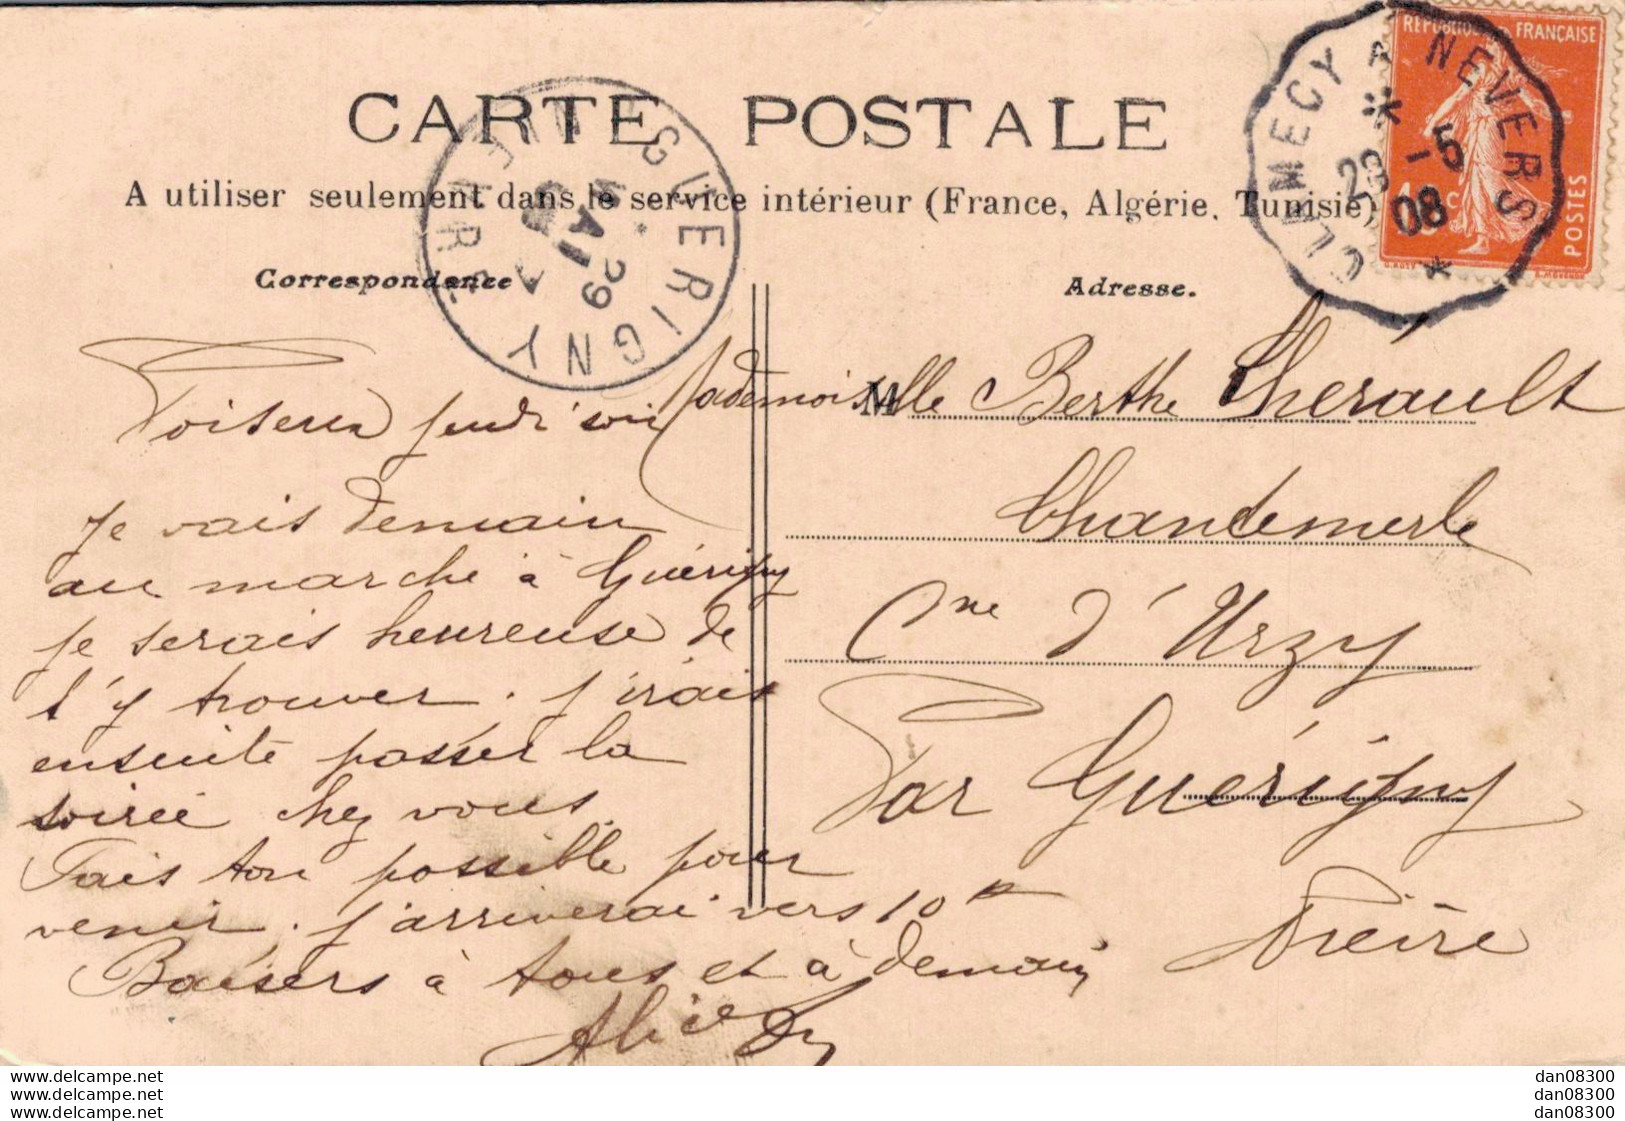 CARTE POSTALE
A utiliser seulement dans le service intérieur (France, Algérie, Tunisie)
Correspondance
Adresse.
REPUBLIQUE FRANÇAISE
POSTES
10 c
CLAMECY A NEVERS
29 -5
08
GUERIGNY
NIEVRE
29
MAI
08
Poiseux jeudi soir
Je vais demain
au marché à Guérigny
je serais heureuse de
t'y trouver. j'irais
ensuite passer la
soirée chez vous.
Fais ton possible pour
venir. j'arriverai vers 10 h
Baisers à tous et à demain
Alice
Mademoiselle Berthe Thérault
Chandemerle
Cne d'Urzy
Par Guérigny
Nièvre
www.delcampe.net
www.delcampe.net
www.delcampe.net
dan08300
dan08300
dan08300